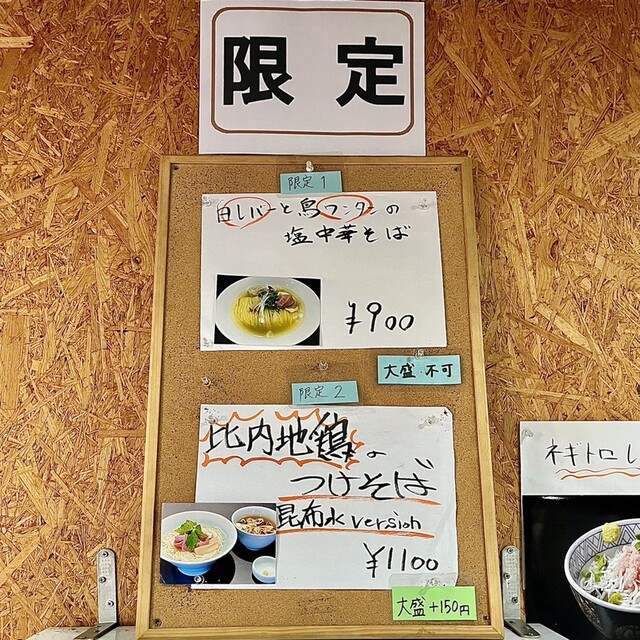 限定
限定1
白レバーと鳥ワンタンの
塩中華そば
¥900
大盛・不可
限定2
比内地鶏の
つけそば
昆布水version
¥1100
大盛+150円
ネギトロレ